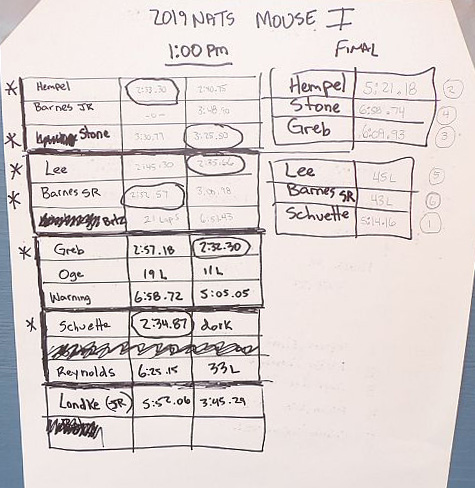 2019 NATS MOUSE I
1:00 PM
FINAL
* Hempel 2:33.30 2:40.75
Barnes JR -0- 3:48.90
* Stone 3:30.77 3:25.80
* Lee 2:45.30 2:35.66
* Barnes SR 2:52.57 3:00.78
Betz 21 Laps 6:51.43
* Greb 2:57.18 2:32.30
Oge 19 L 11 L
Warning 6:58.72 5:05.05
* Schuette 2:34.87 dork
Reynolds 6:25.15 33L
Londke (JR) 5:52.06 3:45.29
Hempel 5:21.18 2
Stone 6:58.74 4
Greb 6:09.93 3
Lee 45L 5
Barnes SR 43L 6
Schuette 5:14.16 1